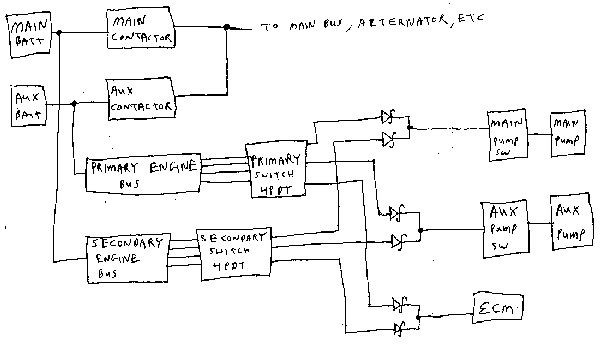 MAIN
BATT
MAIN
CONTACTOR
TO MAIN BUS, ARTERNATOR, ETC
AUX
BATT
AUX
CONTACTOR
PRIMARY ENGINE
BUS
PRIMARY
SWITCH
4PDT
MAIN
PUMP
SW
MAIN
PUMP
SECONDARY
ENGINE
BUS
SECONDARY
SWITCH
4PDT
AUX
PUMP
SW
AUX
PUMP
ECM